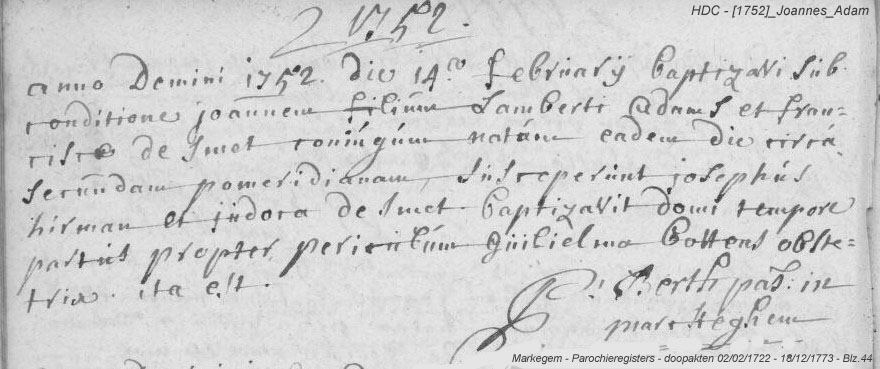 HDC - [1752]_Joannes_Adam
1752.
anno Domini 1752. die 14.a februarij baptizavi sub
conditione joannem filium Lamberti Adams et fran=
cisce de Smet coniugum natum eadem die circa
secundam pomeridianam, susceperunt josephus
hirman et judoca de Smet. baptizavit domi tempore
partus propter periculum Guilielma Bottens obste=
trix. ita est.
Berth past: in
marckeghem
Markegem - Parochieregisters - doopakten 02/02/1722 - 18/12/1773 - Blz.44